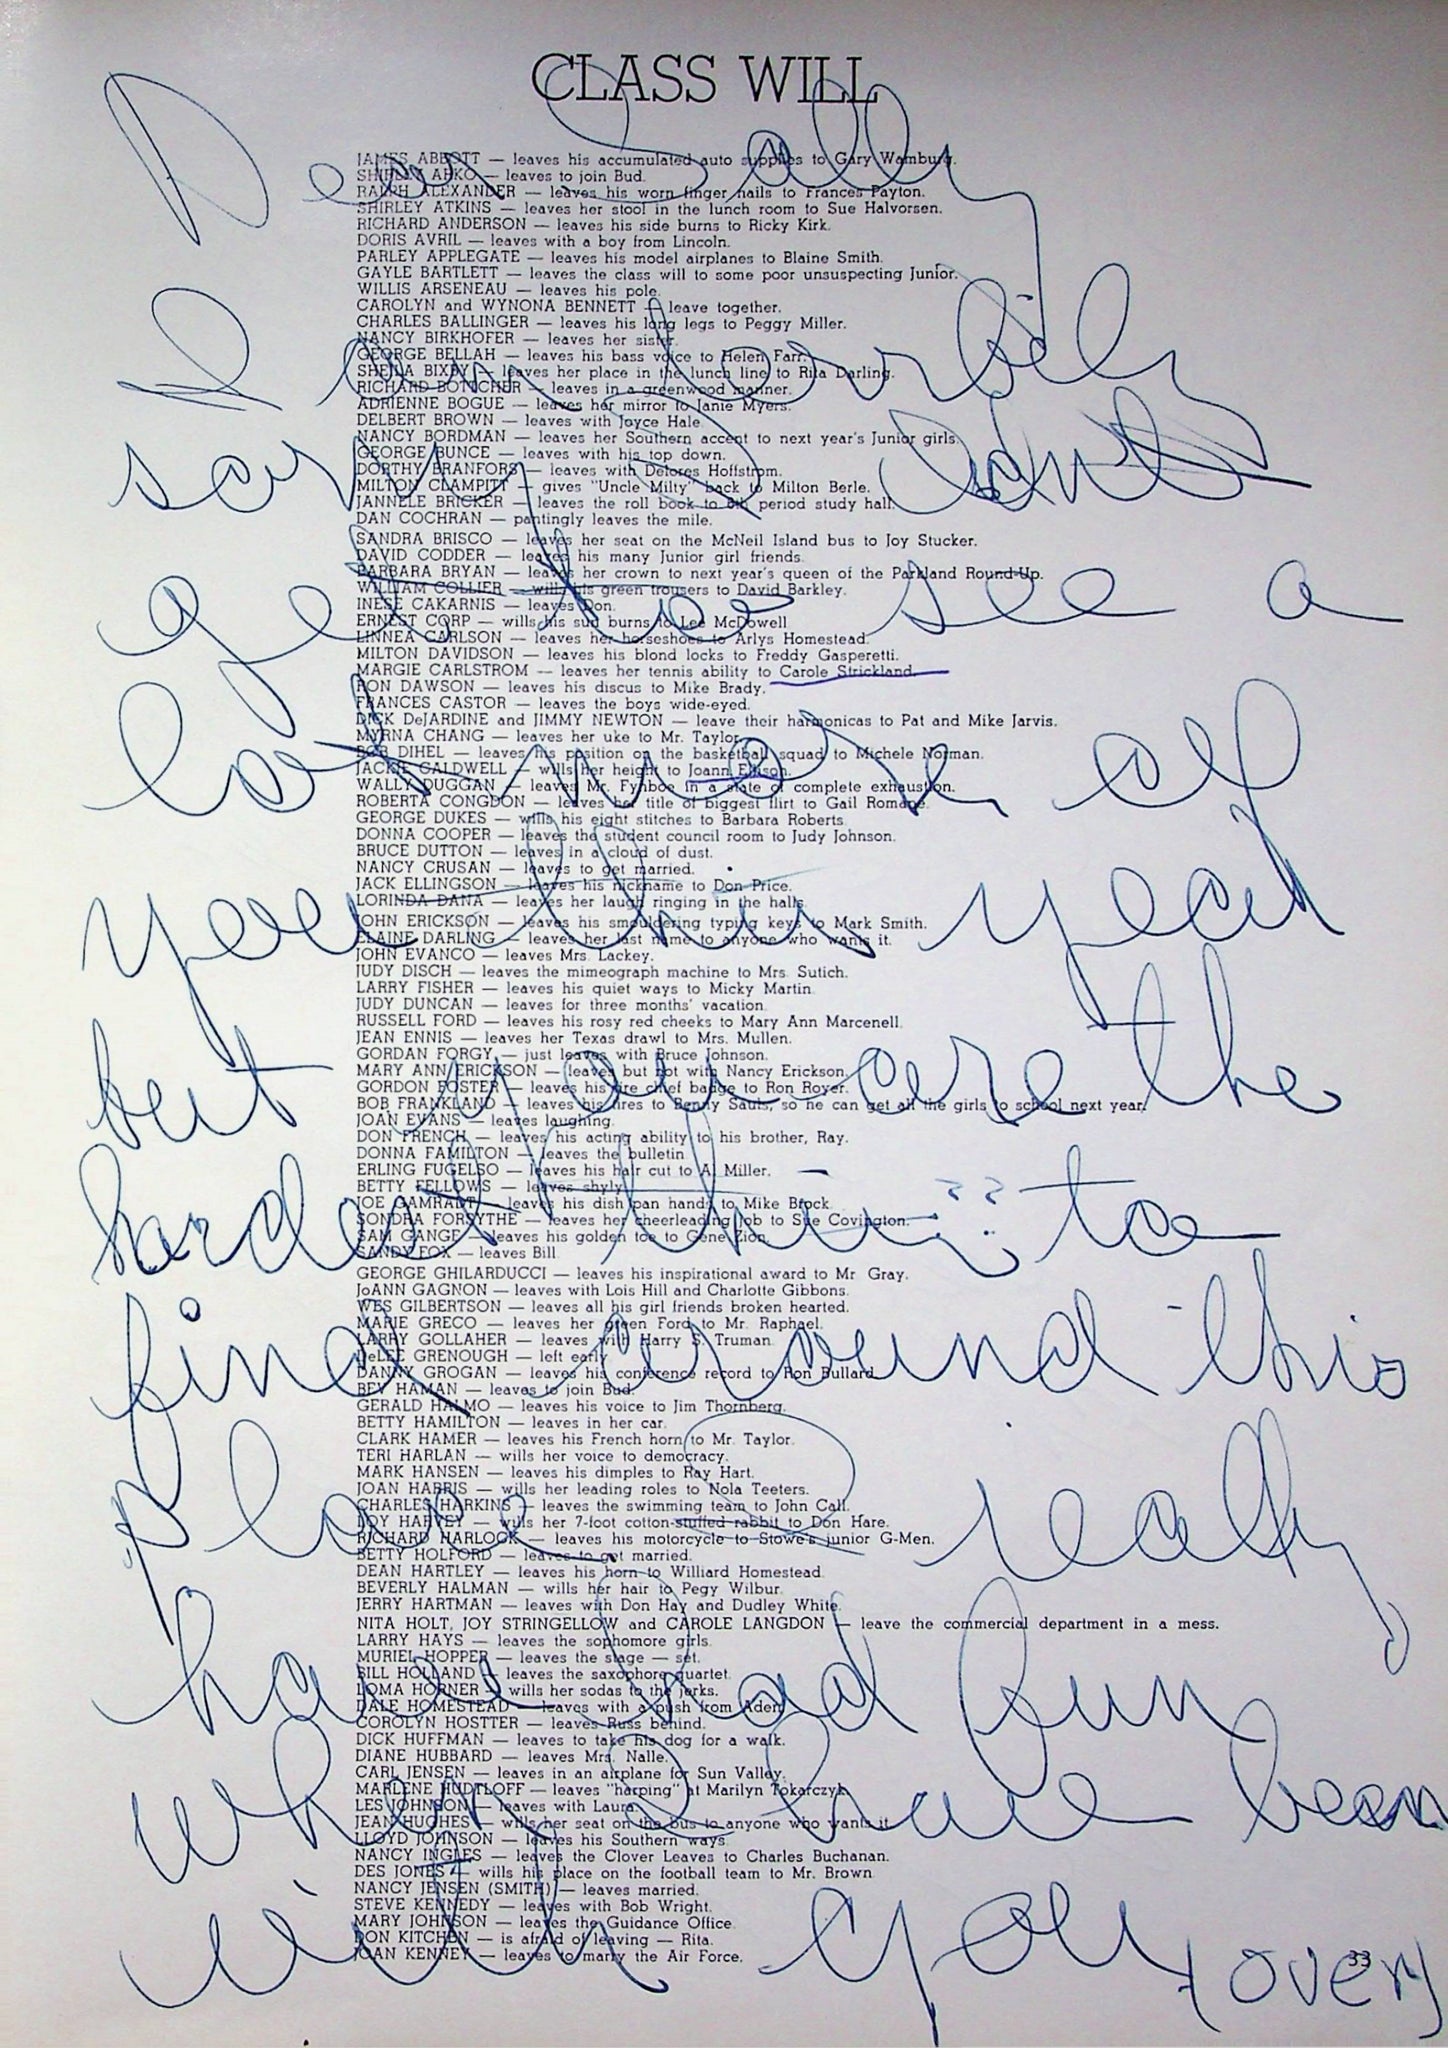 CLASS WILL
JAMES ABBOTT — leaves his accumulated auto supplies to Gary Wamburg.
SHIRLEY ABKO — leaves to join Bud.
RALPH ALEXANDER — leaves his worn finger nails to Frances Payton.
SHIRLEY ATKINS — leaves her stool in the lunch room to Sue Halvorsen.
RICHARD ANDERSON — leaves his side burns to Ricky Kirk.
DORIS AVRIL — leaves with a boy from Lincoln.
PARLEY APPLEGATE — leaves his model airplanes to Blaine Smith.
GAYLE BARTLETT — leaves the class will to some poor unsuspecting Junior.
WILLIS ARSENEAU — leaves his pole.
CAROLYN and WYNONA BENNETT — leave together.
CHARLES BALLINGER — leaves his long legs to Peggy Miller.
NANCY BIRKHOFER — leaves her sister.
GEORGE BELLAH — leaves his bass voice to Helen Farr.
SHEILA BIXBY — leaves her place in the lunch line to Rita Darling.
RICHARD BOTTCHER — leaves in a greenwood manner.
ADRIENNE BOGUE — leaves her mirror to Janie Myers.
DELBERT BROWN — leaves with Joyce Hale.
NANCY BORDMAN — leaves her Southern accent to next year's Junior girls.
GEORGE BUNCE — leaves with his top down.
DORTHY BRANFORS — leaves with Delores Hoffstrom.
MILTON CLAMPITT — gives "Uncle Milty" back to Milton Berle.
JANNELE BRICKER — leaves the roll book to 6th period study hall.
DAN COCHRAN — pantingly leaves the mile.
SANDRA BRISCO — leaves her seat on the McNeil Island bus to Joy Stucker.
DAVID CODDER — leaves his many Junior girl friends.
BARBARA BRYAN — leaves her crown to next year's queen of the Parkland Round-Up.
WILLIAM COLLIER — wills his green trousers to David Barkley.
INESE CAKARNIS — leaves Don.
ERNEST CORP — wills his sun burns to Lee McDowell
LINNEA CARLSON — leaves her horseshoes to Arlys Homestead.
MILTON DAVIDSON — leaves his blond locks to Freddy Gasperetti.
MARGIE CARLSTROM — leaves her tennis ability to Carole Strickland.
RON DAWSON — leaves his discus to Mike Brady.
FRANCES CASTOR — leaves the boys wide-eyed.
DICK DeJARDINE and JIMMY NEWTON — leave their harmonicas to Pat and Mike Jarvis.
MYRNA CHANG — leaves her uke to Mr. Taylor.
BOB DIHEL — leaves his position on the basketball squad to Michele Norman.
JACKIE CALDWELL — wills her height to Joann Ellison.
WALLY DUGGAN — leaves Mr. Fynboe in a state of complete exhaustion.
ROBERTA CONGDON — leaves her title of biggest flirt to Gail Romane.
GEORGE DUKES — wills his eight stitches to Barbara Roberts.
DONNA COOPER — leaves the student council room to Judy Johnson.
BRUCE DUTTON — leaves in a cloud of dust.
NANCY CRUSAN — leaves to get married.
JACK ELLINGSON — leaves his nickname to Don Price.
LORINDA DANA — leaves her laugh ringing in the halls.
JOHN ERICKSON — leaves his smouldering typing keys to Mark Smith.
ELAINE DARLING — leaves her last name to anyone who wants it.
JOHN EVANCO — leaves Mrs. Lackey.
JUDY DISCH — leaves the mimeograph machine to Mrs. Sutich.
LARRY FISHER — leaves his quiet ways to Micky Martin.
JUDY DUNCAN — leaves for three months' vacation.
RUSSELL FORD — leaves his rosy red cheeks to Mary Ann Marcenell.
JEAN ENNIS — leaves her Texas drawl to Mrs. Mullen.
GORDAN FORGY — just leaves with Bruce Johnson.
MARY ANN ERICKSON — leaves but not with Nancy Erickson.
GORDON FOSTER — leaves his fire chief badge to Ron Royer.
BOB FRANKLAND — leaves his tires to Benny Sauls, so he can get all the girls to school next year.
JOAN EVANS — leaves laughing.
DON FRENCH — leaves his acting ability to his brother, Ray.
DONNA FAMILTON — leaves the bulletin.
ERLING FUGELSO — leaves his hair cut to Al Miller.
BETTY FELLOWS — leaves shyly.
JOE GAMRADT — leaves his dish pan hands to Mike Brock.
SONDRA FORSYTHE — leaves her cheerleading job to Sue Covington.
SAM GANGE — leaves his golden toe to Gene Zion.
SANDY FOX — leaves Bill.
GEORGE GHILARDUCCI — leaves his inspirational award to Mr. Gray.
JoANN GAGNON — leaves with Lois Hill and Charlotte Gibbons.
WES GILBERTSON — leaves all his girl friends broken hearted.
MARIE GRECO — leaves her green Ford to Mr. Raphael.
LARRY GOLLAHER — leaves with Harry S. Truman.
DeLEE GRENOUGH — left early.
DANNY GROGAN — leaves his conference record to Ron Bullard.
BEV HAMAN — leaves to join Bud.
GERALD HALMO — leaves his voice to Jim Thornberg.
BETTY HAMILTON — leaves in her car.
CLARK HAMER — leaves his French horn to Mr. Taylor.
TERI HARLAN — wills her voice to democracy.
MARK HANSEN — leaves his dimples to Ray Hart.
JOAN HARRIS — wills her leading roles to Nola Teeters.
CHARLES HARKINS — leaves the swimming team to John Call.
LOY HARVEY — wills her 7-foot cotton-stuffed rabbit to Don Hare.
RICHARD HARLOCK — leaves his motorcycle to Stowe's junior G-Men.
BETTY HOLFORD — leaves to get married.
DEAN HARTLEY — leaves his horn to Williard Homestead.
BEVERLY HALMAN — wills her hair to Pegy Wilbur.
JERRY HARTMAN — leaves with Don Hay and Dudley White.
NITA HOLT, JOY STRINGELLOW and CAROLE LANGDON — leave the commercial department in a mess.
LARRY HAYS — leaves the sophomore girls.
MURIEL HOPPER — leaves the stage — set.
BILL HOLLAND — leaves the saxophone quartet.
LOMA HORNER — wills her sodas to the jerks.
DALE HOMESTEAD — leaves with a push from Aden.
COROLYN HOSTTER — leaves Russ behind.
DICK HUFFMAN — leaves to take his dog for a walk.
DIANE HUBBARD — leaves Mrs. Nalle.
CARL JENSEN — leaves in an airplane for Sun Valley.
MARLENE HUDTLOFF — leaves "harping" at Marilyn Tokarczyk.
LES JOHNSON — leaves with Laura.
JEAN HUGHES — wills her seat on the bus to anyone who wants it.
LLOYD JOHNSON — leaves his Southern ways.
NANCY INGLES — leaves the Clover Leaves to Charles Buchanan.
DES JONES — wills his place on the football team to Mr. Brown.
NANCY JENSEN (SMITH) — leaves married.
STEVE KENNEDY — leaves with Bob Wright.
MARY JOHNSON — leaves the Guidance Office.
DON KITCHEN — is afraid of leaving — Rita.
JOAN KENNEY — leaves to marry the Air Force.
33
Dear Sally
I am horribly
sorry I didn't
get too see a
lot more of
you this year
but you are the
hardest thing ?? to
find around this
place. I really
have had fun
when I have been
with you
(over)